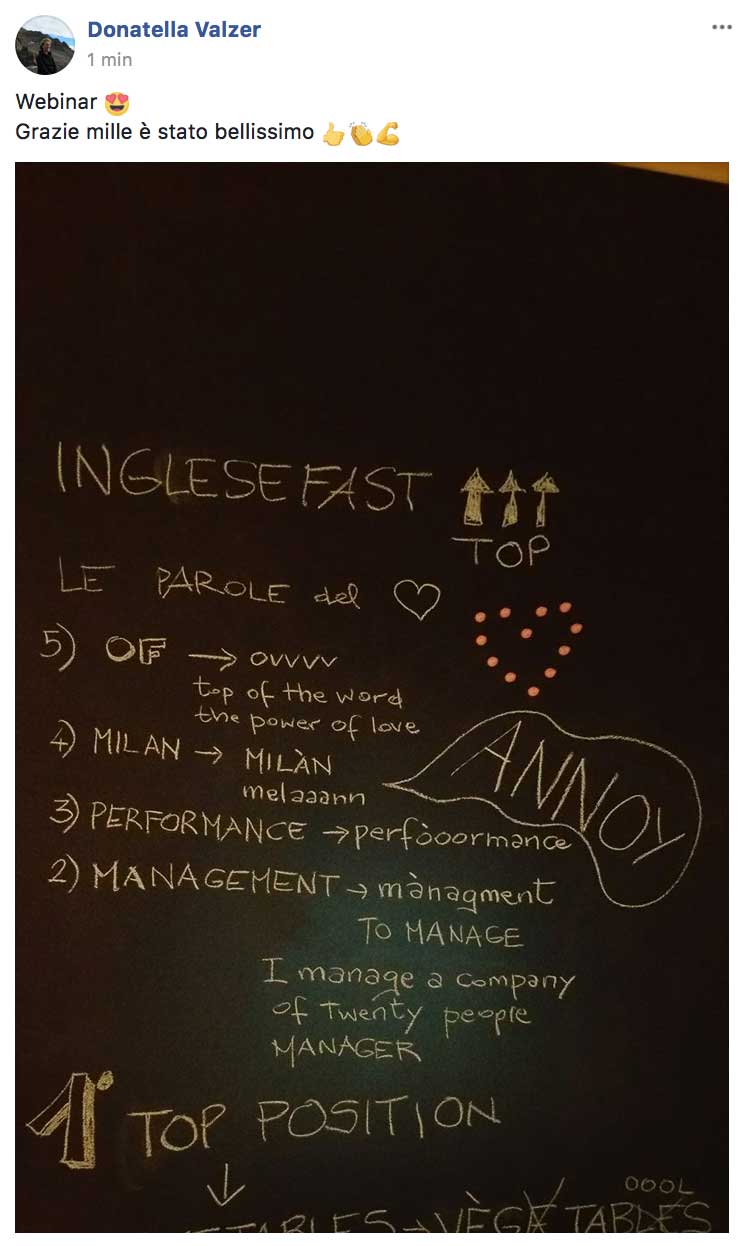 Donatella Valzer
1 min
Webinar 😍
Grazie mille è stato bellissimo 👍👏💪
INGLESE FAST
TOP
LE PAROLE del ♡
5) OF → ovvvv
top of the word
the power of love
4) MILAN → MILÀN
melaaann
ANNOY
3) PERFORMANCE → perfòoormance
2) MANAGEMENT → mànagment
TO MANAGE
I manage a company
of twenty people
MANAGER
1° TOP POSITION
↓
OOOL
→ VÈGETABLES